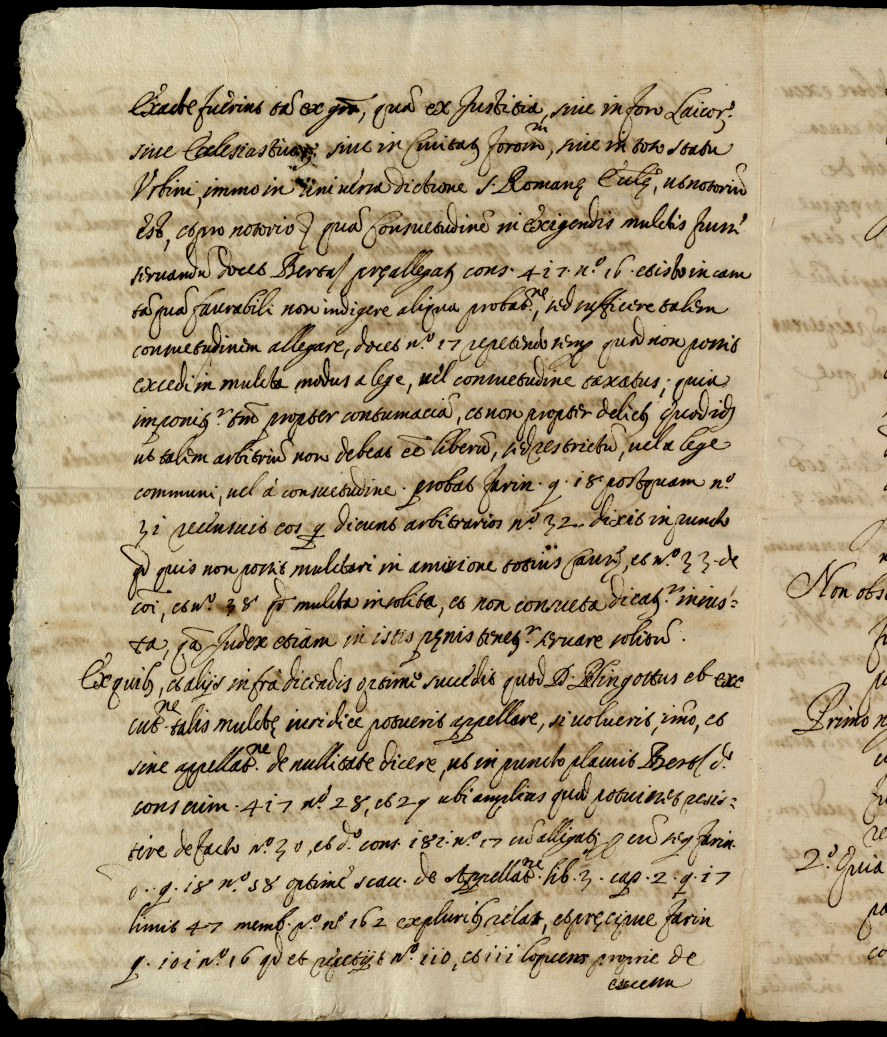 Exacte fuerint tā ex grā, quā ex Justitia, siue in foro Laicor.
siue Ecclesiastico, siue in Ciuitat, siue in toto statu
Vrbini, immo in uniuersa dictione S. Romanę Eccl.ę, ut notoriū
est, et pro notorio quā Consuetudinē in exigendis mulctis
seruandū docet Bertaz pręallegat cons. 417. n.º 16. et isto in casu
tāquā fauorabili non indigere aliqua probat.ne, sed sufficere talem
consuetudinem allegare, docet n.º 17 repetendo semp quod non possit
excedi in mulcta modus a lege, uel consuetudine taxatus; quia
imponit.r tm̄ propter contumaciā, et non propter delict, quod
ut talem arbitriū non debeat eē liberū, sed restrictū, uel a lege
communi, uel á consuetudine. probat farin. q. 18 postquam n.º
31 recensuit eos q dicunt arbitrarios n.º 32. dixit in puncto
qd quis non possit mulctari in amissione totius, et n.º 33. de
coī, et n.º 38 qd mulcta insolita, et non consueta dicat.r inius=
ta qa Judex etiam in istis pęnis tenet.r seruare solitū.
Ex quib, et alijs infrà dicendis optimè succedit quod D. Plingottus ab exe
cut.ne talis mulctę iuridice potuerit appellare, si uoluerit, imò, et
sine appellat.ne de nullitate dicere, ut in puncto placuit Bertaz d.º
cons cum. 417 n.º 28, et 29 ubi amplius quod potuisset resis=
tere de facto n.º 30, et d.º cons. 181. n.º 17 cū allegat, cū seq farin.
q. 18 n.º 58 optimè scac. de Appellat.ne lib. 3. cap. 2. q. 17
limit 47 memb. p.º n.º 162 ex plurib relat, et pręcipue farin
q. 101 n.º 16 qd et repetijt n.º 110, et 111 loquens proprie de
Non obs
Primo
2.º Quia